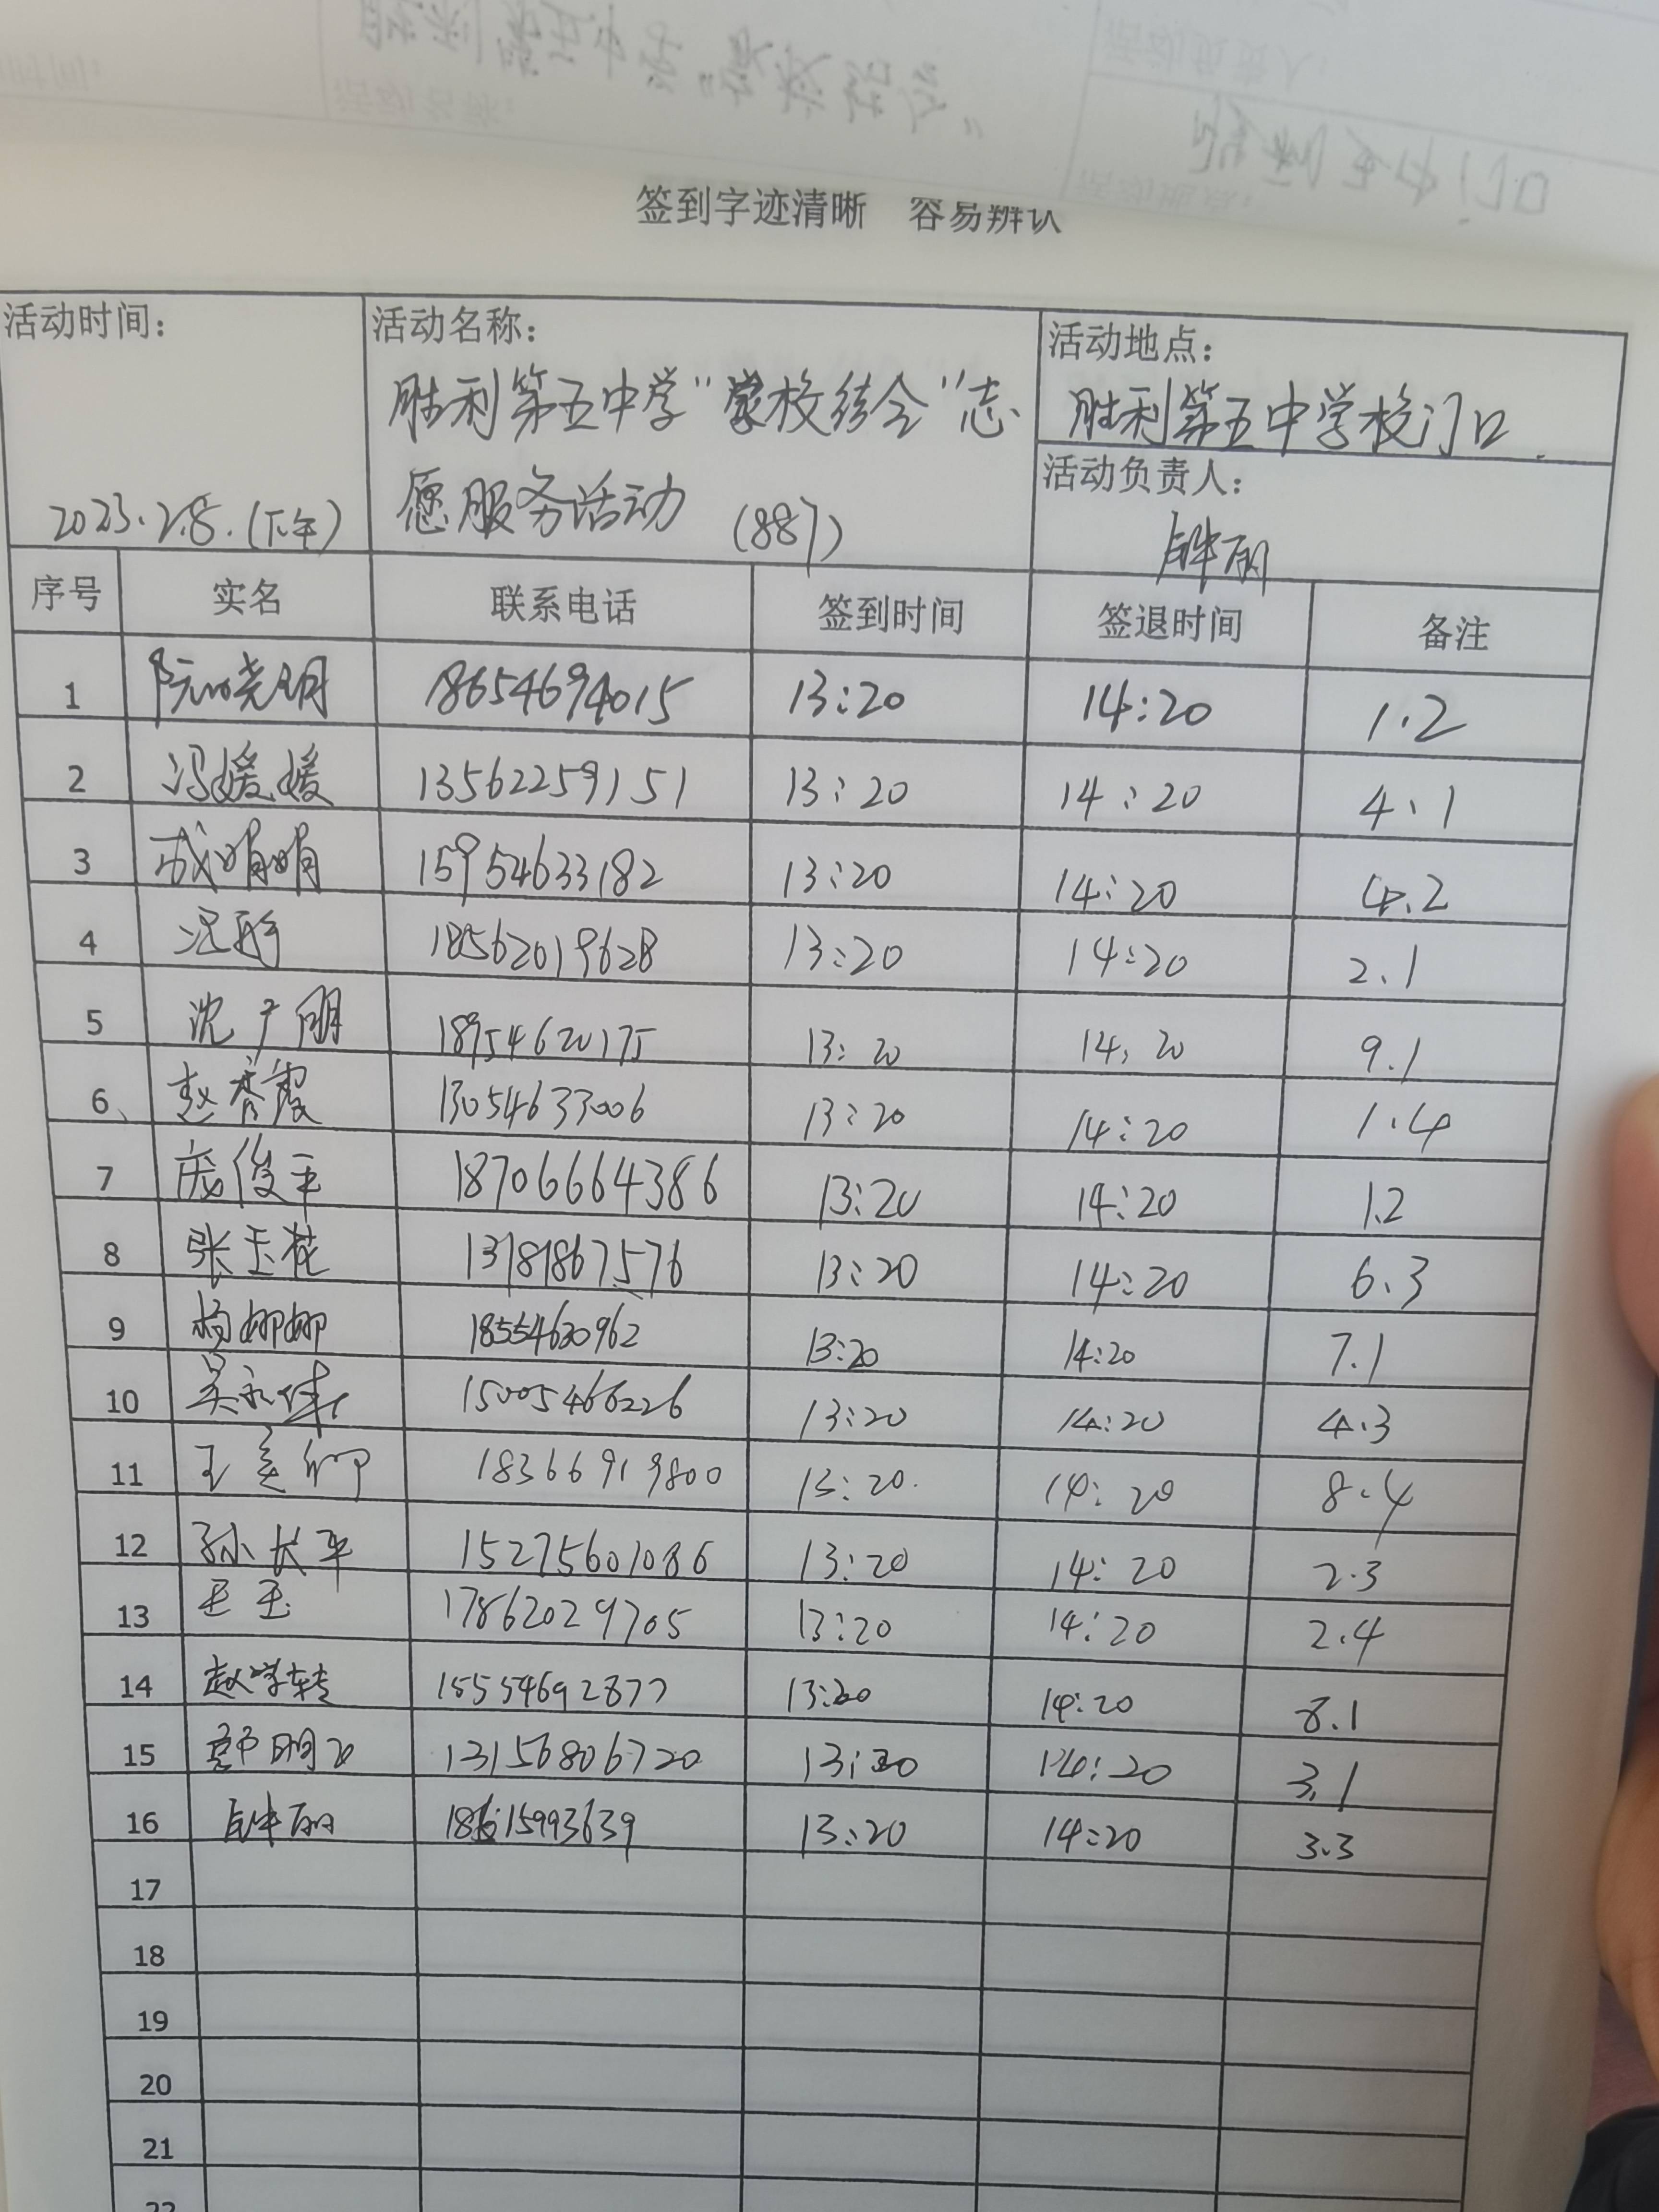 签到字迹清晰 容易辨认
活动时间：
2023.2.8.(下午)
活动名称：
胜利第五中学“家校结合”志
愿服务活动 (887)
活动地点：
胜利第五中学校门口
活动负责人：
序号 实名 联系电话 签到时间 签退时间 备注
1 阮晓明 18654694015 13:20 14:20 1.2
2 冯媛媛 13562259151 13:20 14:20 4.1
3 成明明 15954633182 13:20 14:20 4.2
4 18562019628 13:20 14:20 2.1
5 沈广明 18954620175 13:20 14:20 9.1
6 赵秀霞 13054633006 13:20 14:20 1.4
7 庞俊平 18706664386 13:20 14:20 1.2
8 张玉花 13781867576 13:20 14:20 6.3
9 杨娜娜 18554630962 13:20 14:20 7.1
10 吴永伟 15005466226 13:20 14:20 4.3
11 18366919800 13:20 14:20 8.4
12 孙长平 15275601086 13:20 14:20 2.3
13 17862029705 13:20 14:20 2.4
14 15554692877 13:20 14:20 8.1
15 13156806720 13:20 14:20 3.1
16 18615993639 13:20 14:20 3.3
17
18
19
20
21
22